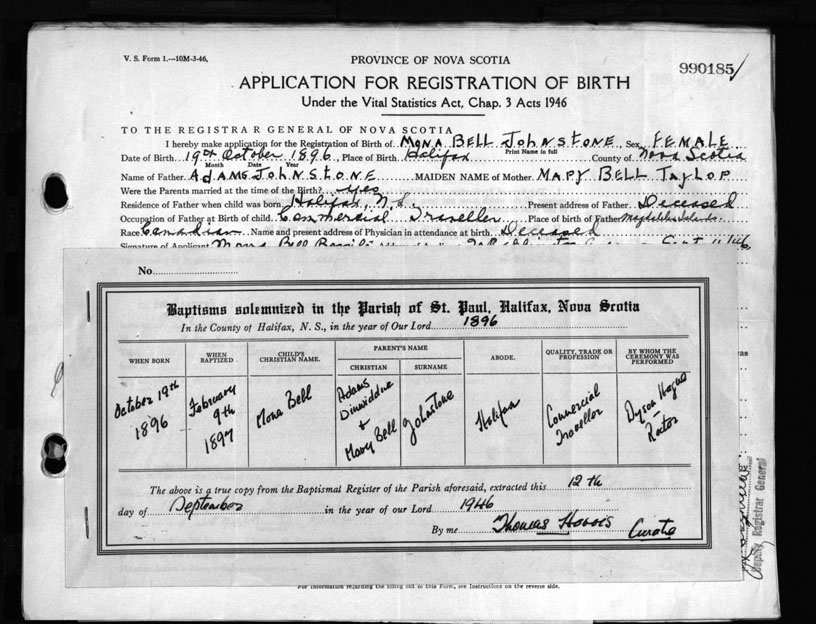 V. S. Form 1.—10M-3-46,
PROVINCE OF NOVA SCOTIA
990185
APPLICATION FOR REGISTRATION OF BIRTH
Under the Vital Statistics Act, Chap. 3 Acts 1946
TO THE REGISTRAR GENERAL OF NOVA SCOTIA
I hereby make application for the Registration of Birth of MONA BELL JOHNSTONE, Sex FEMALE
Print Name in full
Date of Birth 19th October 1896, Place of Birth Halifax County of Nova Scotia
Month Date Year
Name of Father ADAMS JOHNSTONE MAIDEN NAME of Mother MARY BELL TAYLOR
Were the Parents married at the time of the Birth? yes
Residence of Father when child was born Halifax, N.S. Present address of Father Deceased
Occupation of Father at Birth of child Commercial Traveller Place of birth of Father Magdalen Islands
Race Canadian Name and present address of Physician in attendance at birth Deceased
Signature of Applicant Mona Bell
No
Baptisms solemnized in the Parish of St. Paul, Halifax, Nova Scotia
In the County of Halifax, N. S., in the year of Our Lord 1896
WHEN BORN
WHEN BAPTIZED
CHILD'S CHRISTIAN NAME.
PARENT'S NAME
CHRISTIAN
SURNAME
ABODE.
QUALITY, TRADE OR PROFESSION
BY WHOM THE CEREMONY WAS PERFORMED
October 19th 1896
February 9th 1897
Mona Bell
Adams Dinwiddie + Mary Bell
Johnstone
Halifax
Commercial Traveller
Dyson Hague Rector
The above is a true copy from the Baptismal Register of the Parish aforesaid, extracted this 12th
day of September in the year of our Lord 1946
By me Thomas Curate
Deputy Registrar General
For information regarding the filling out of this Form, see Instructions on the reverse side.